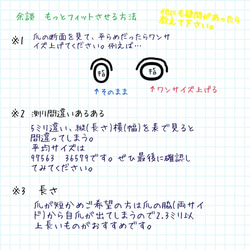 余談 もっとフィットさせる方法
他にも疑問があったら
教えて下さい。
※1 爪の断面を見て、平らめだったらワンサ
イズ上げてください。例えば…
幅
幅
↑そのまま
↑ワンサイズ上げる
※2 測り間違いあるある
5ミリ違い、縦(長さ)横(幅)を表で見ると
間違ってしまう。
平均サイズは
97563 36579です。ぜひ最後に確認し
てみてください。
※3 長さ
爪が短かめご希望の方は爪の脇(両サイ
ド)から自爪が出てしまうので2.3ミリ以
上長いものがおすすめです。